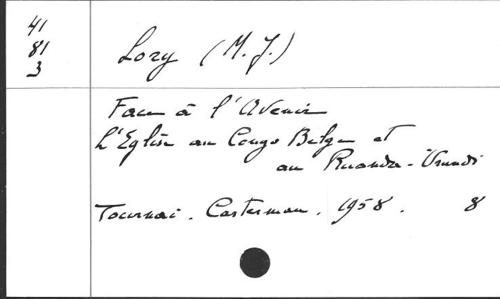 41
81
3
Lory (M. J.)
Face à l'Avenir
L'Eglise au Congo Belge et
au Ruanda-Urundi
Tournai. Casterman. 1958. 8